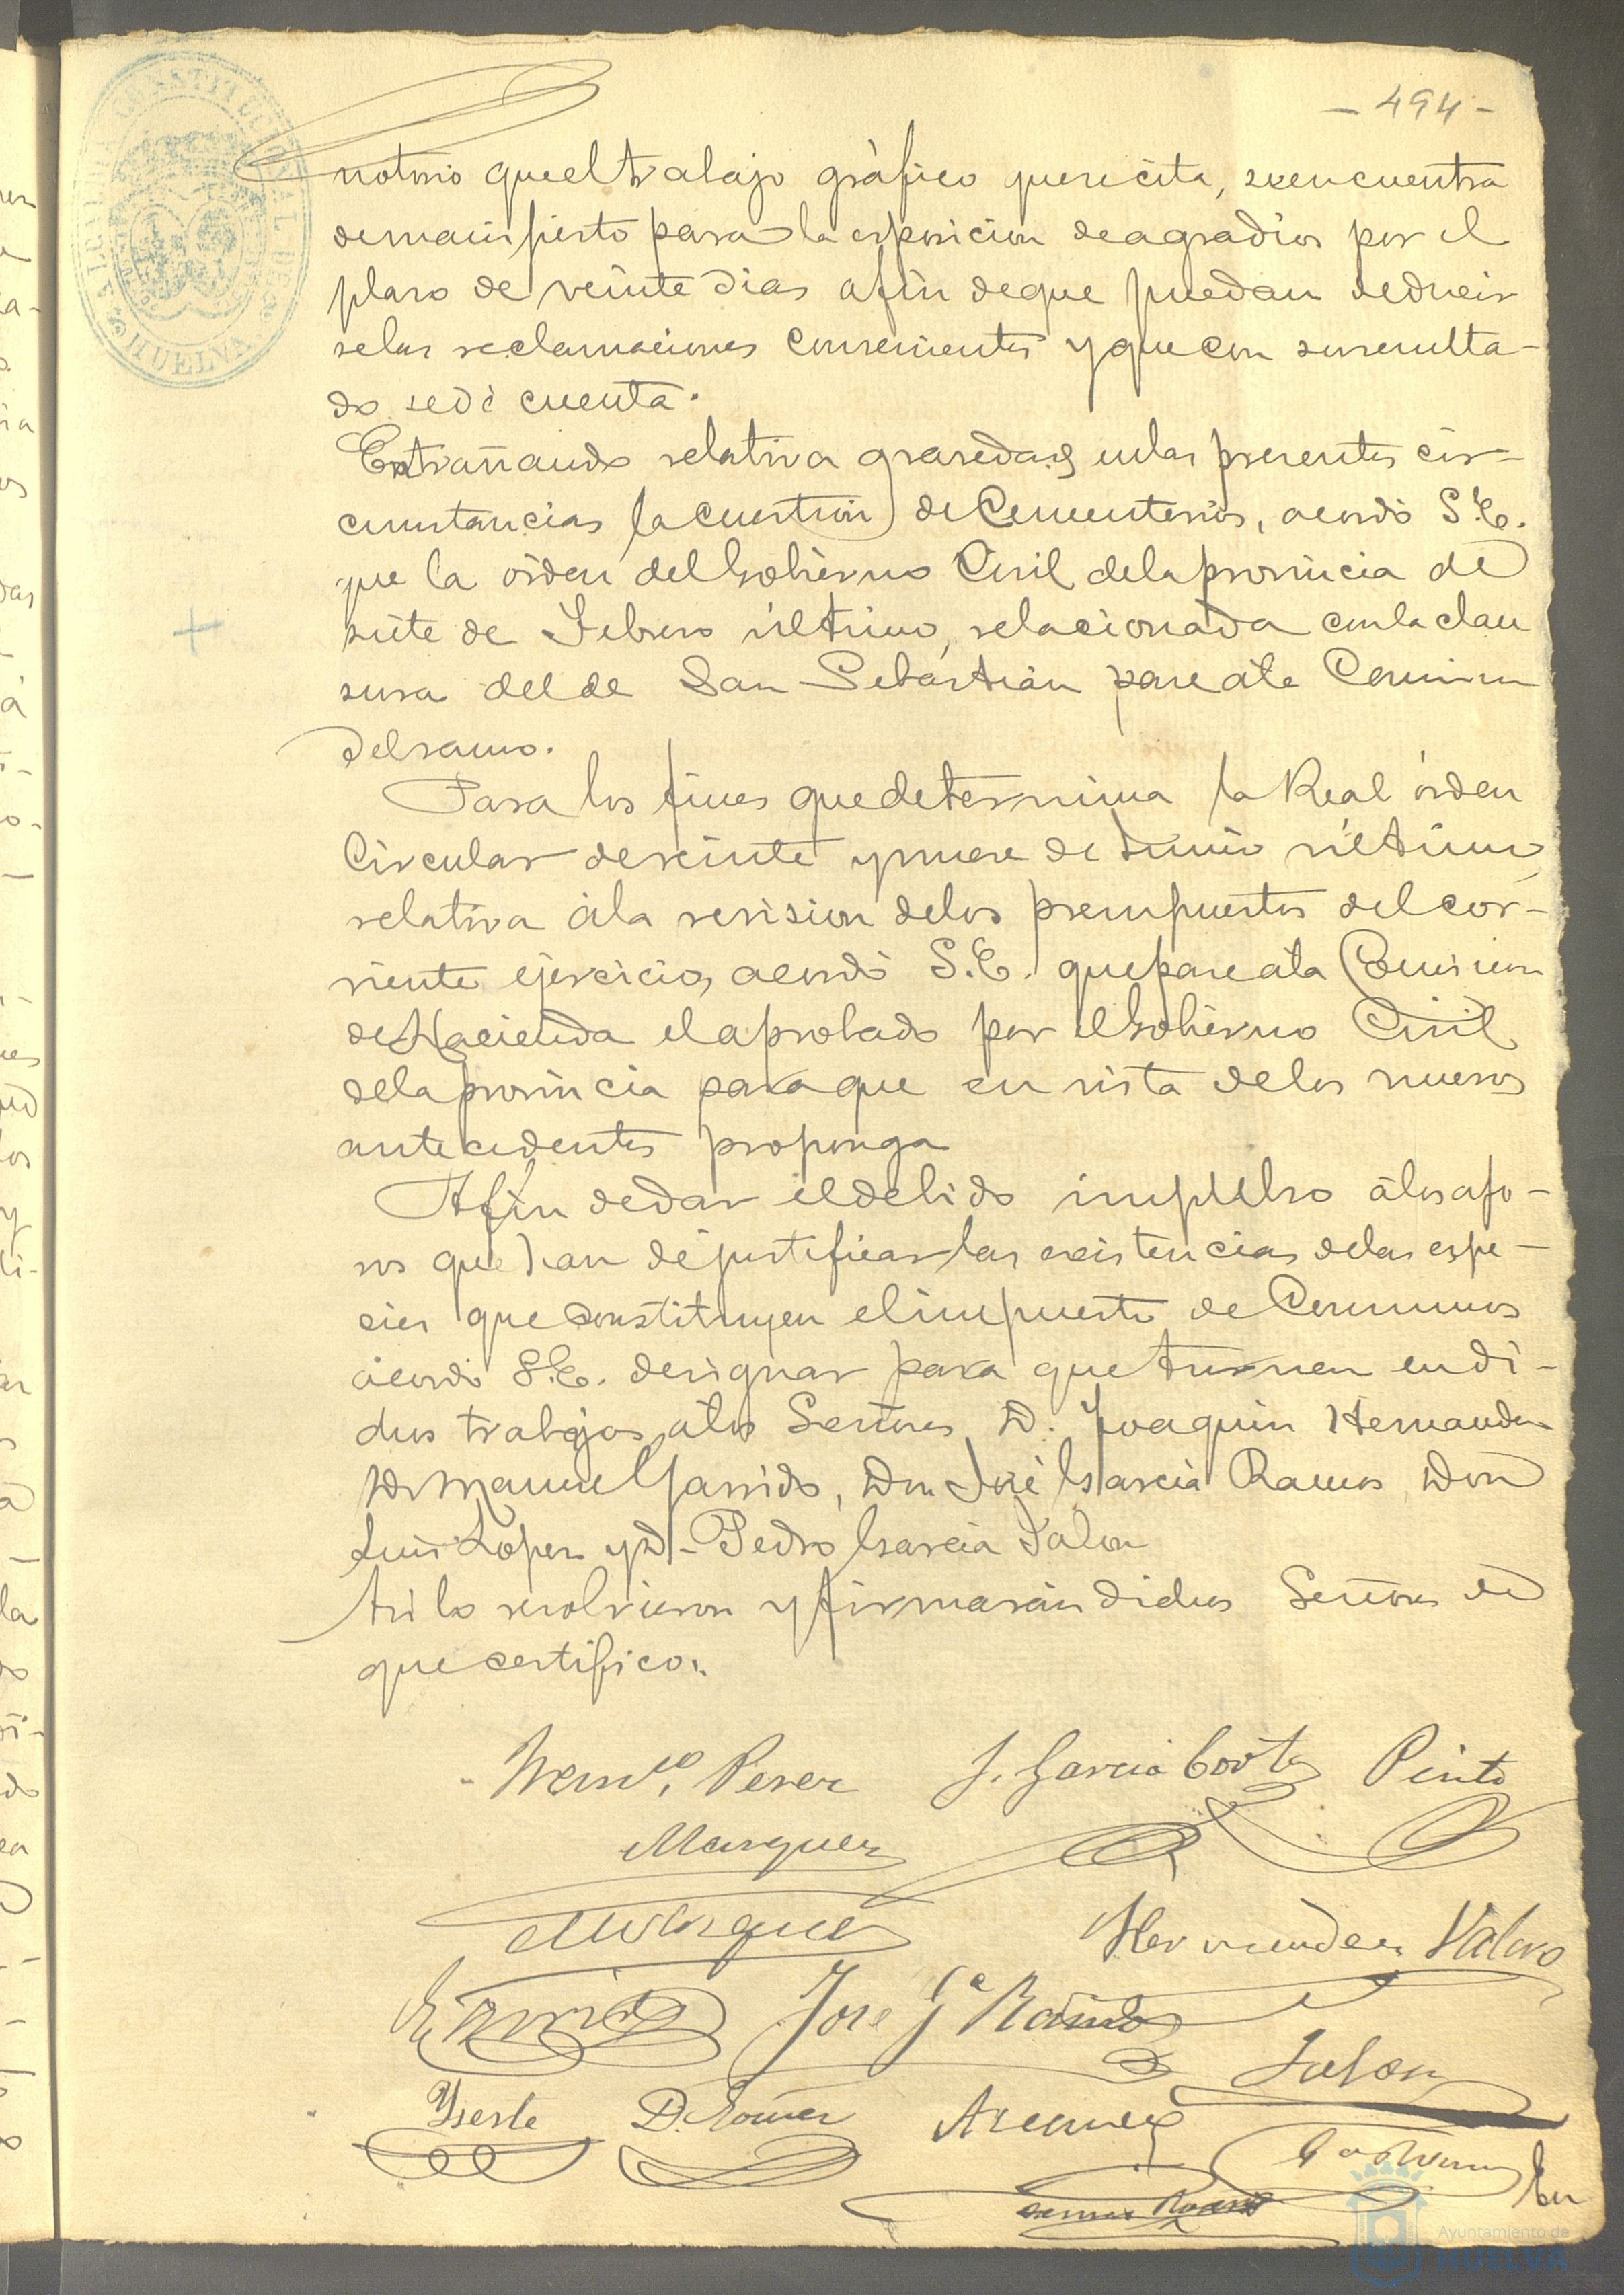 - 494 -
ALCALDIA CONSTITUCIONAL DE HUELVA
notorio que el trabajo gráfico que se cita, se encuentra
de manifiesto para la esposicion de agravios por el
plazo de veinte dias afin de que puedan deducir
se las reclamaciones convenientes y que con su resulta-
do se dé cuenta.
Entrañando relativa gravedad en las presentes cir-
cunstancias la cuestion de Cementerios, acordó S.E.
que la órden del Gobierno Civil de la provincia de
siete de Febrero último, relacionada con la clau
sura del de San Sebastián pase á la Comision
del ramo.
Para los fines que determina la Real órden
Circular de veinte y nueve de Junio último,
relativa á la revision de los presupuestos del cor-
riente ejercicio, acordó S.E. que pase á la Comision
de Hacienda el aprobado por el Gobierno Civil
de la provincia para que en vista de los nuevos
antecedentes proponga
Afin de dar el debido impulso á los afo-
ros que han de justificar las existencias de las espe-
cies que constituyen el impuesto de Consumos
acordó S.E. designar para que turnen en di-
chos trabajos, á los Señores D. Joaquin Hernandez
D. Manuel Garrido, Don José Garcia Ramos Don
Luis Lopez y D. Pedro Garcia Jalon
Así lo resolvieron y firmarán dichos Señores de
que certifico.
Perez J. Garcia Cortes Pinto
Marquez
Hernandez Valero
José Gª Ramos
Jalon
Yseste D. Gomez
Ayuntamiento de
HUELVA